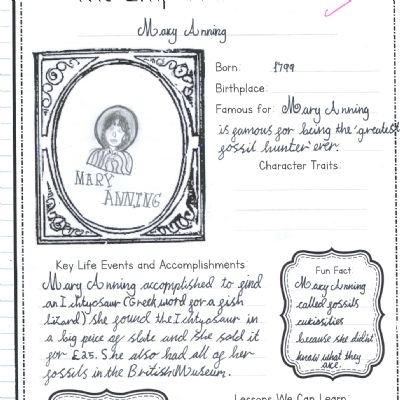 Mary Anning
Born: 1799
Birthplace:
Famous for: Mary Anning
is famous for being the 'greatest
fossil hunter' ever.
Character Traits
MARY
ANNING
Key Life Events and Accomplishments
Mary Anning accomplished to find
an Ichtyosaur (Greek word for a fish
lizard) she found the Ichtyosaur in
a big piece of slate and she sold it
for £25. She also had all of her
fossils in the British Museum.
Fun Fact
Mary Anning
called fossils
curiosities
because she didnt
know what they
are.
Lessons We Can Learn